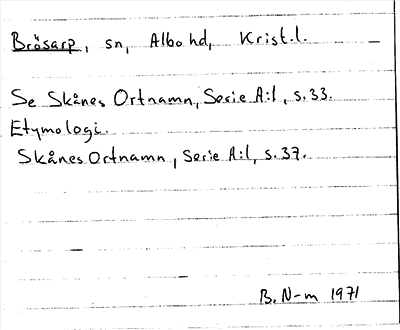 Brösarp, sn, Albo hd, Krist.l.
Se Skånes Ortnamn, Serie A:1, s.33.
Etymologi.
Skånes Ortnamn, Serie A:1, s.37.
B. N-m 1971